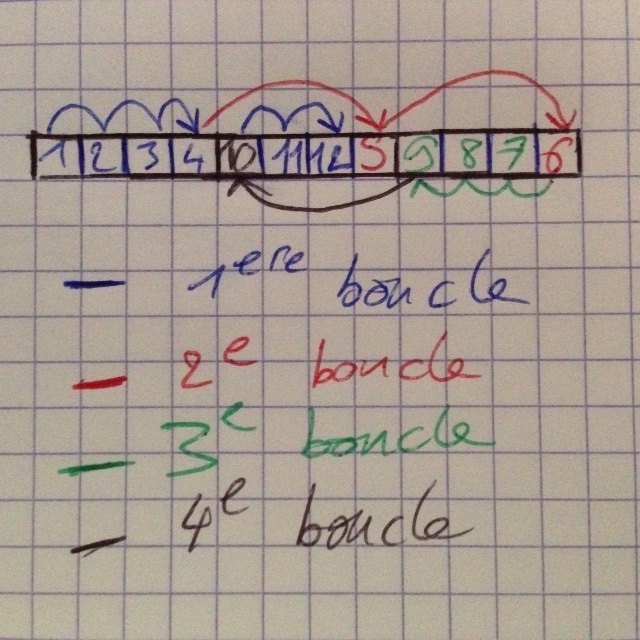 1 2 3 4 10 11 12 5 9 8 7 6
1ere boucle
2e boucle
3e boucle
4e boucle